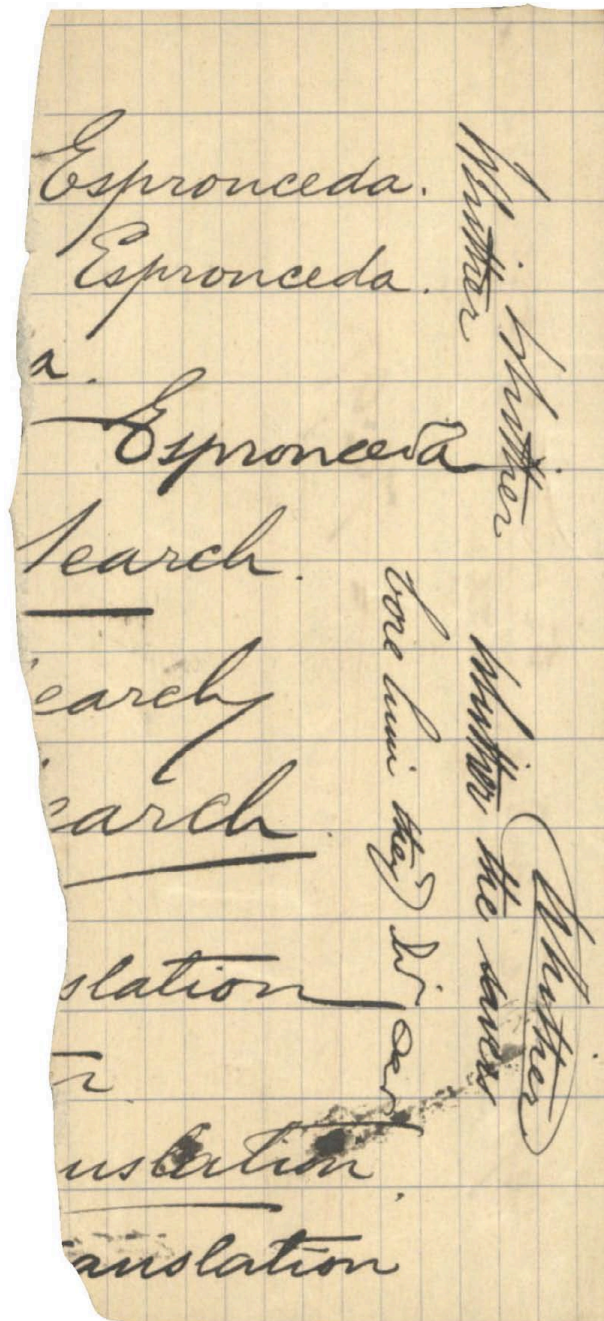 Espronceda.
Espronceda.
a.
Espronceda
Search.
earch
earch
slation
n
nslation.
anslation
Whither
Whither
Whither the
Whither
bore him they